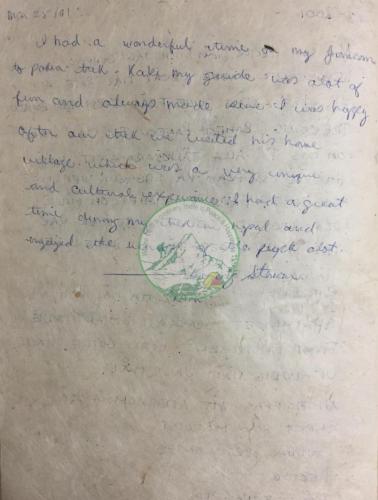 Mar 25/01
I had a wonderful time on my Jomsom
to trek. my guide was alot of
fun and always made sure I was happy
after our trek we visited his home
village which was a very unique
and cultural experience. I had a great
time during my time in Nepal and
enjoyed the of the people alot.